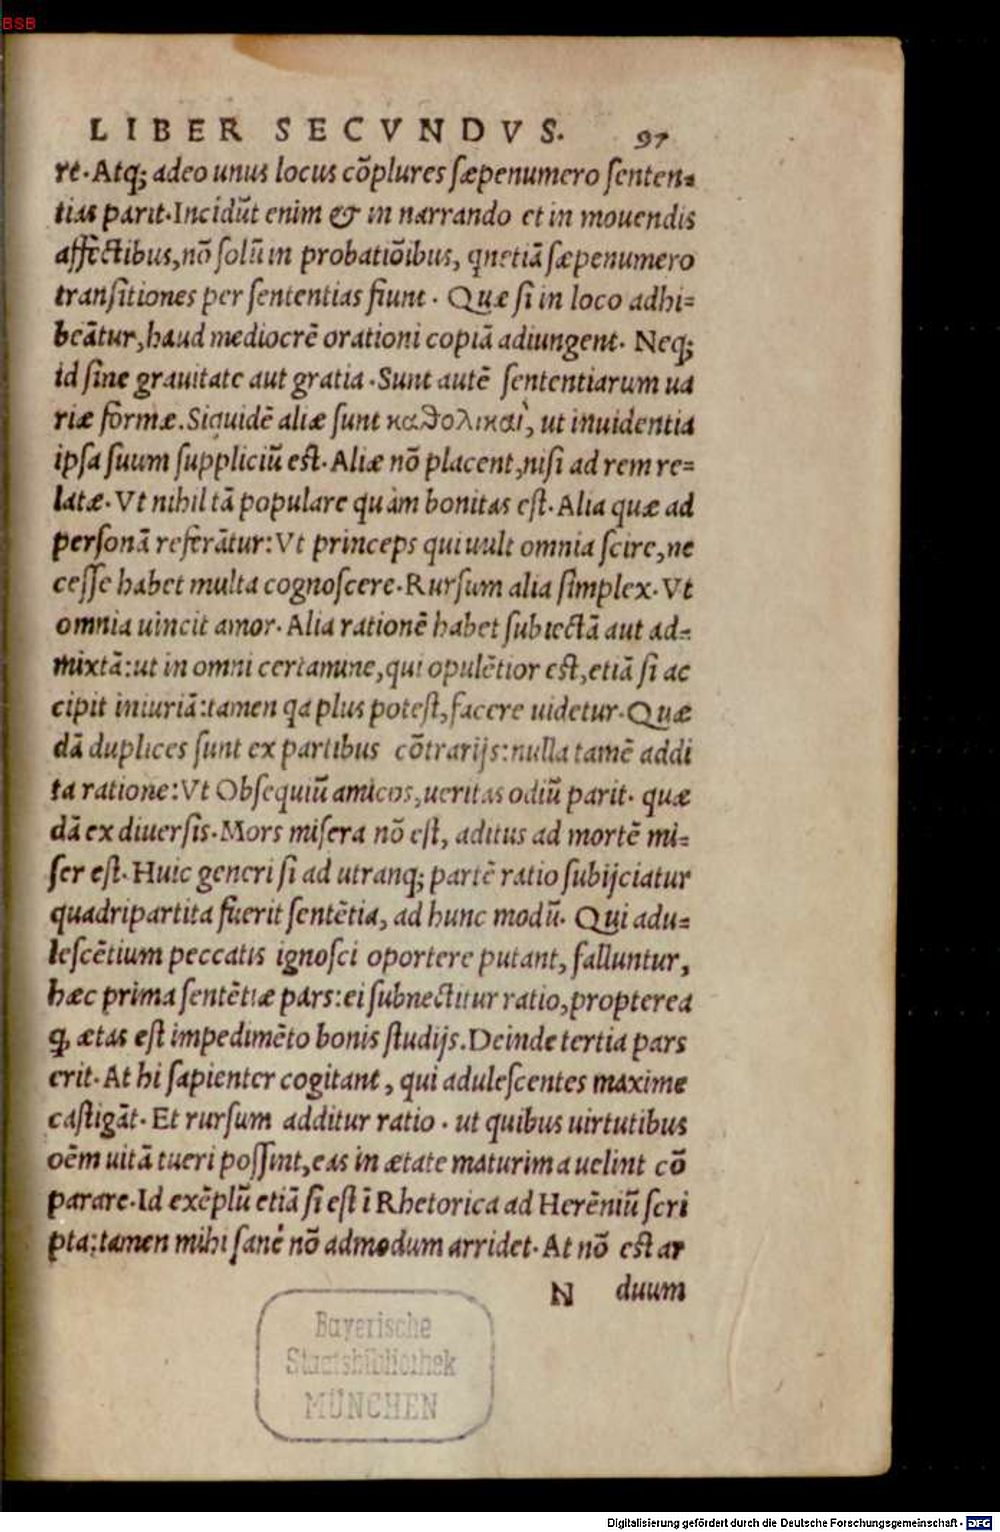 BSB
LIBER SECVNDVS. 97
re. Atq; adeo unus locus cõplures sæpenumero senten-
tias parit. Incidũt enim & in narrando et in mouendis
affectibus, nõ solũ in probatiõibus, qnetiã sæpenumero
transitiones per sententias fiunt. Quæ si in loco adhi=
beãtur, haud mediocrẽ orationi copiã adiungent. Neq;
id sine grauitate aut gratia. Sunt autẽ sententiarum ua
riæ formæ. Siquidẽ aliæ sunt καθολικαὶ, ut inuidentia
ipsa suum suppliciũ est. Aliæ nõ placent, nisi ad rem re=
latæ. Vt nihil tã populare quàm bonitas est. Alia quæ ad
personã referãtur: Vt princeps qui uult omnia scire, ne
cesse habet multa cognoscere. Rursum alia simplex. Vt
omnia uincit amor. Alia rationẽ habet subiectã aut ad-
mixtã: ut in omni certamine, qui opulẽtior est, etiã si ac
cipit iniuriã: tamen qa plus potest, facere uidetur. Quæ
dã duplices sunt ex partibus cõtrarijs: nulla tamẽ addi
ta ratione: Vt Obsequiũ amicos, ueritas odiũ parit. quæ
dã ex diuersis. Mors misera nõ est, aditus ad mortẽ mi=
ser est. Huic generi si ad utranq; partẽ ratio subijciatur
quadripartita fuerit sentẽtia, ad hunc modũ. Qui adu=
lescẽtium peccatis ignosci oportere putant, falluntur,
hæc prima sentẽtiæ pars: ei subnectitur ratio, propterea
q, ætas est impedimẽto bonis studijs. Deinde tertia pars
erit. At hi sapienter cogitant, qui adulescentes maxime
castigãt. Et rursum additur ratio. ut quibus uirtutibus
oẽm uitã tueri possint, eas in ætate maturima uelint cõ
parare. Id exẽplũ etiã si est ĩ Rhetorica ad Herẽniũ scri
pta: tamen mihi sanè nõ admodum arridet. At nõ est ar
N duum
Bayerische
Staatsbibliothek
MÜNCHEN
Digitalisierung gefördert durch die Deutsche Forschungsgemeinschaft - DFG